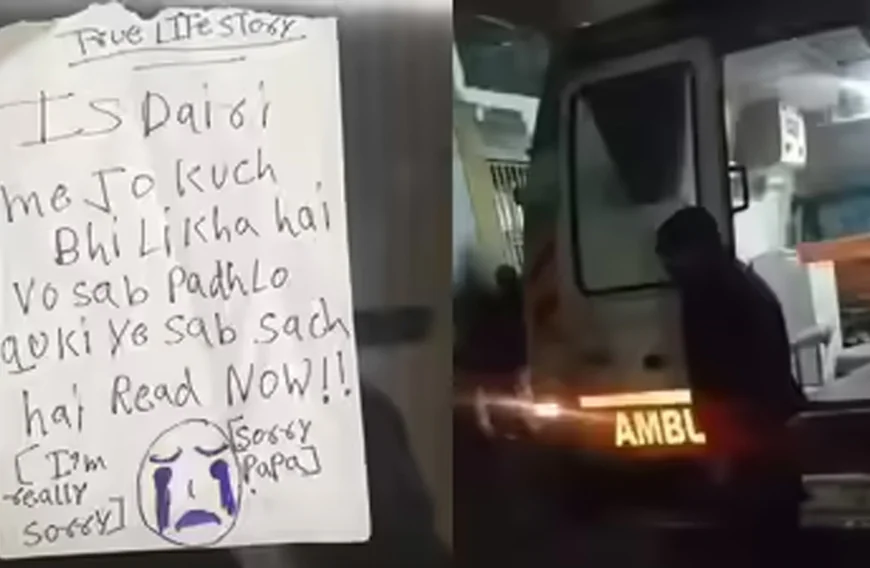 True Life Story
Is Dairi
me Jo Kuch
Bhi Likha hai
Vo sab Padh Lo
quki ye sab sach
hai Read Now!!
[I'm
really
sorry]
[Sorry
Papa]
AMBU